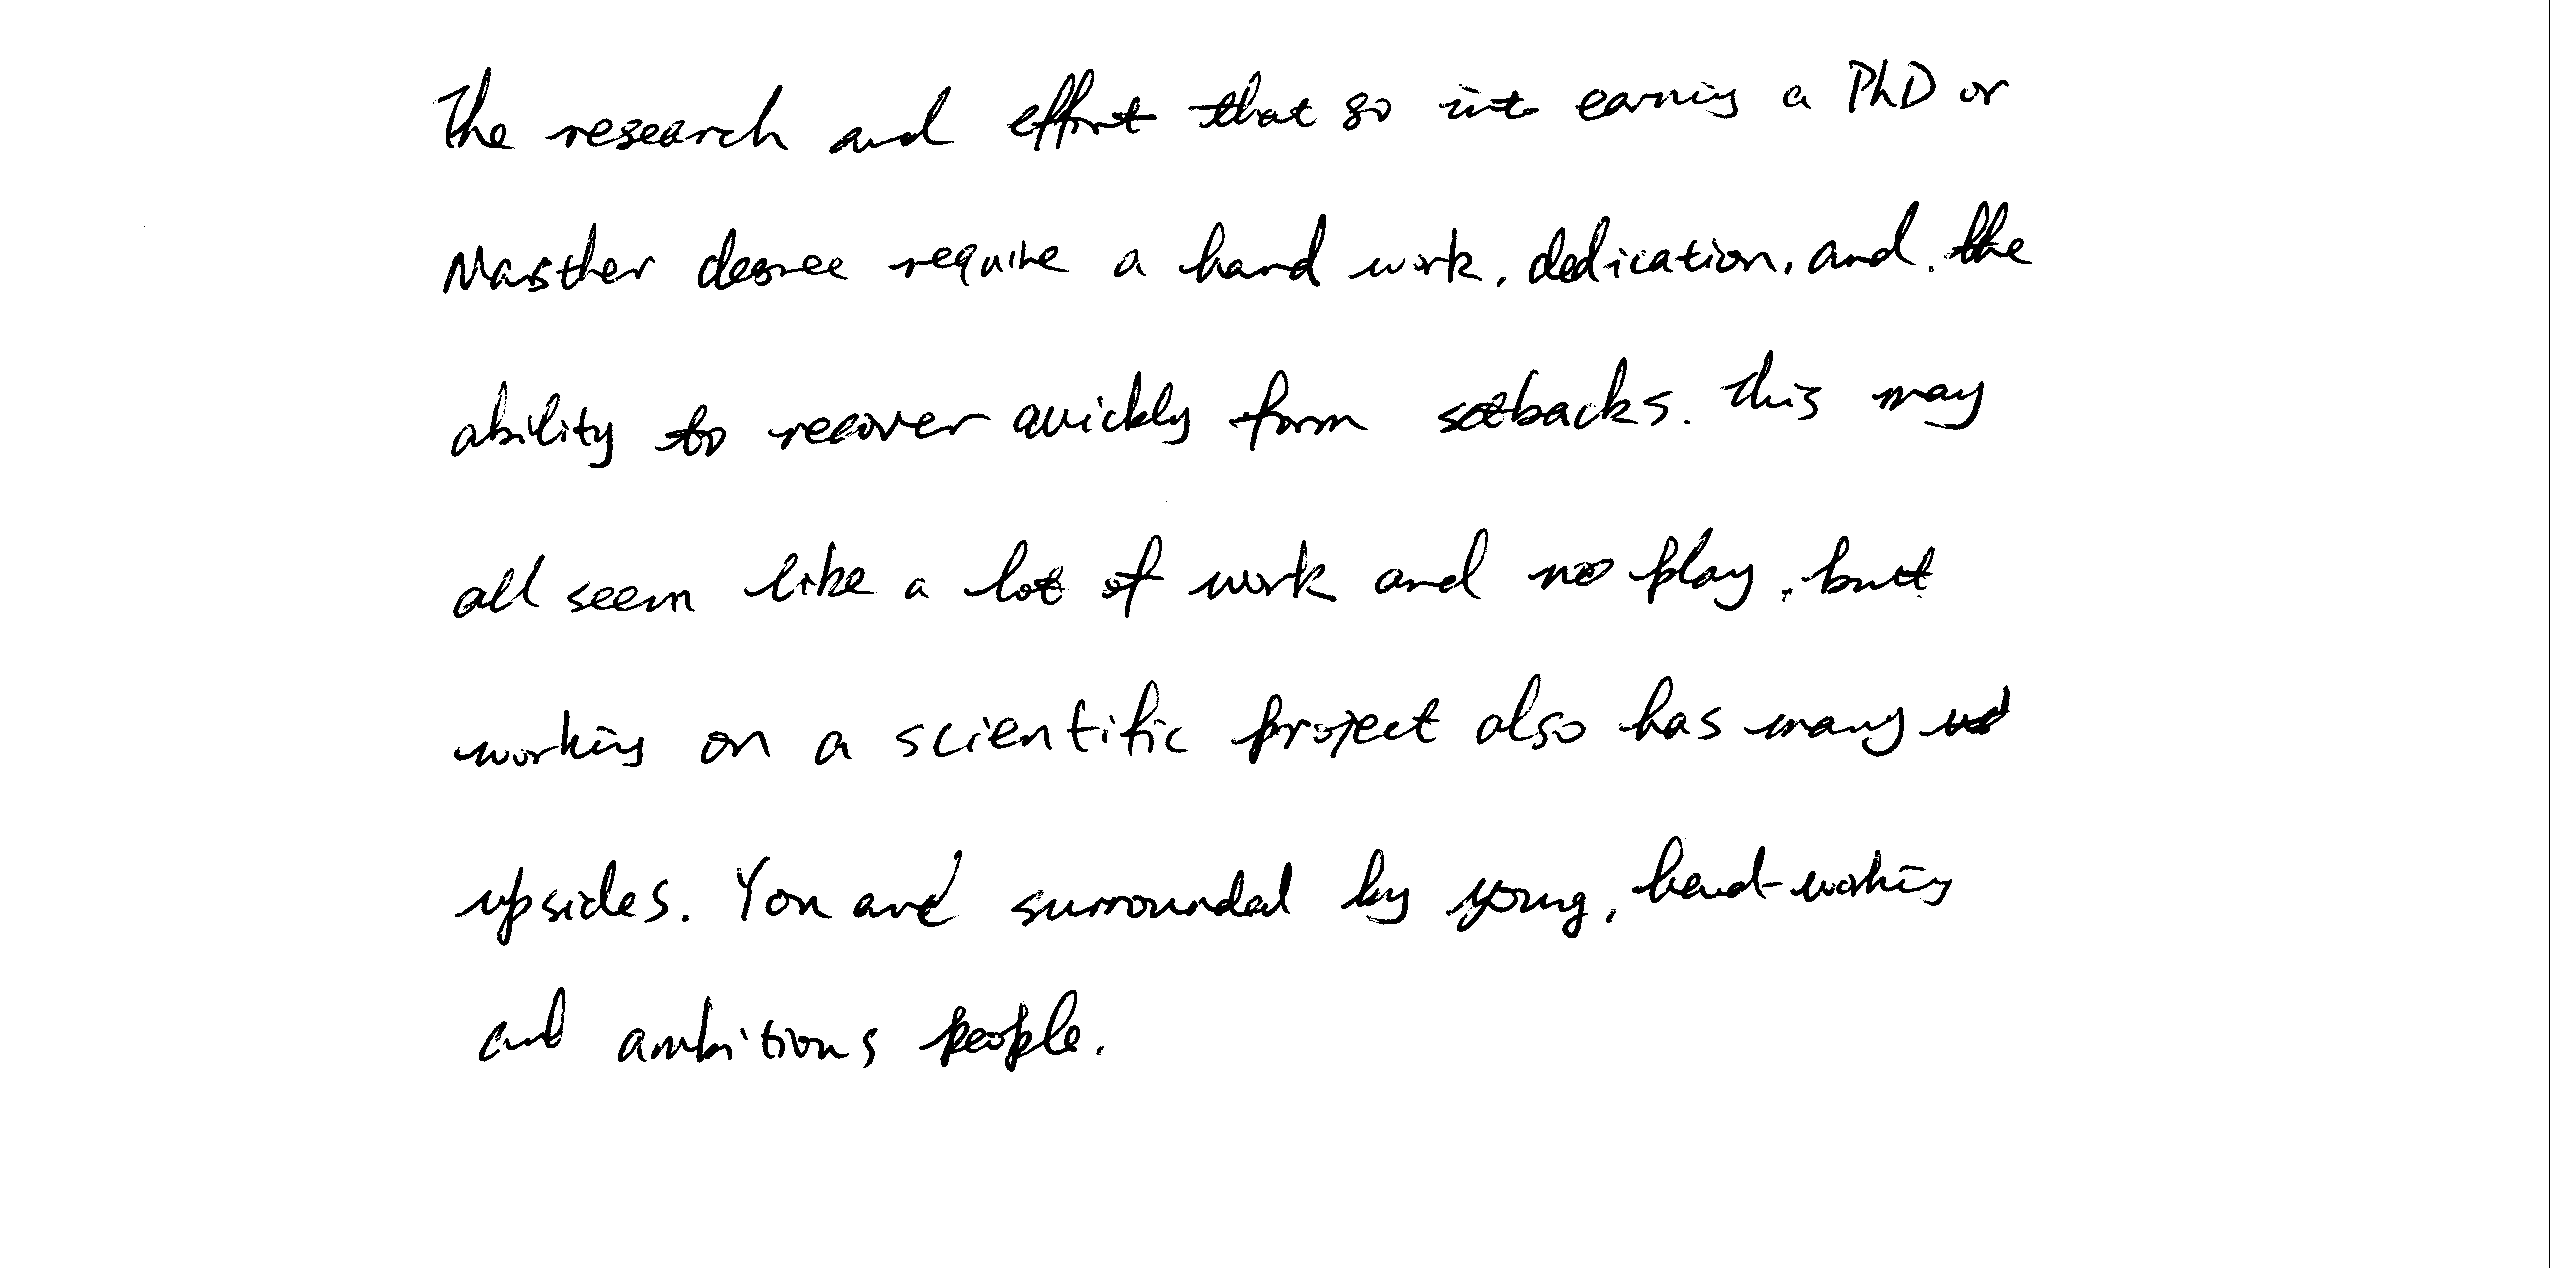 The research and effort that go into earning a PhD or
Masther degree require a hard work, dedication, and, the
ability to recover quickly form setbacks. This may
all seem like a lot of work and no play, but
working on a scientific project also has many
upsides. You are surrounded by young, hard-working
and ambitious people.